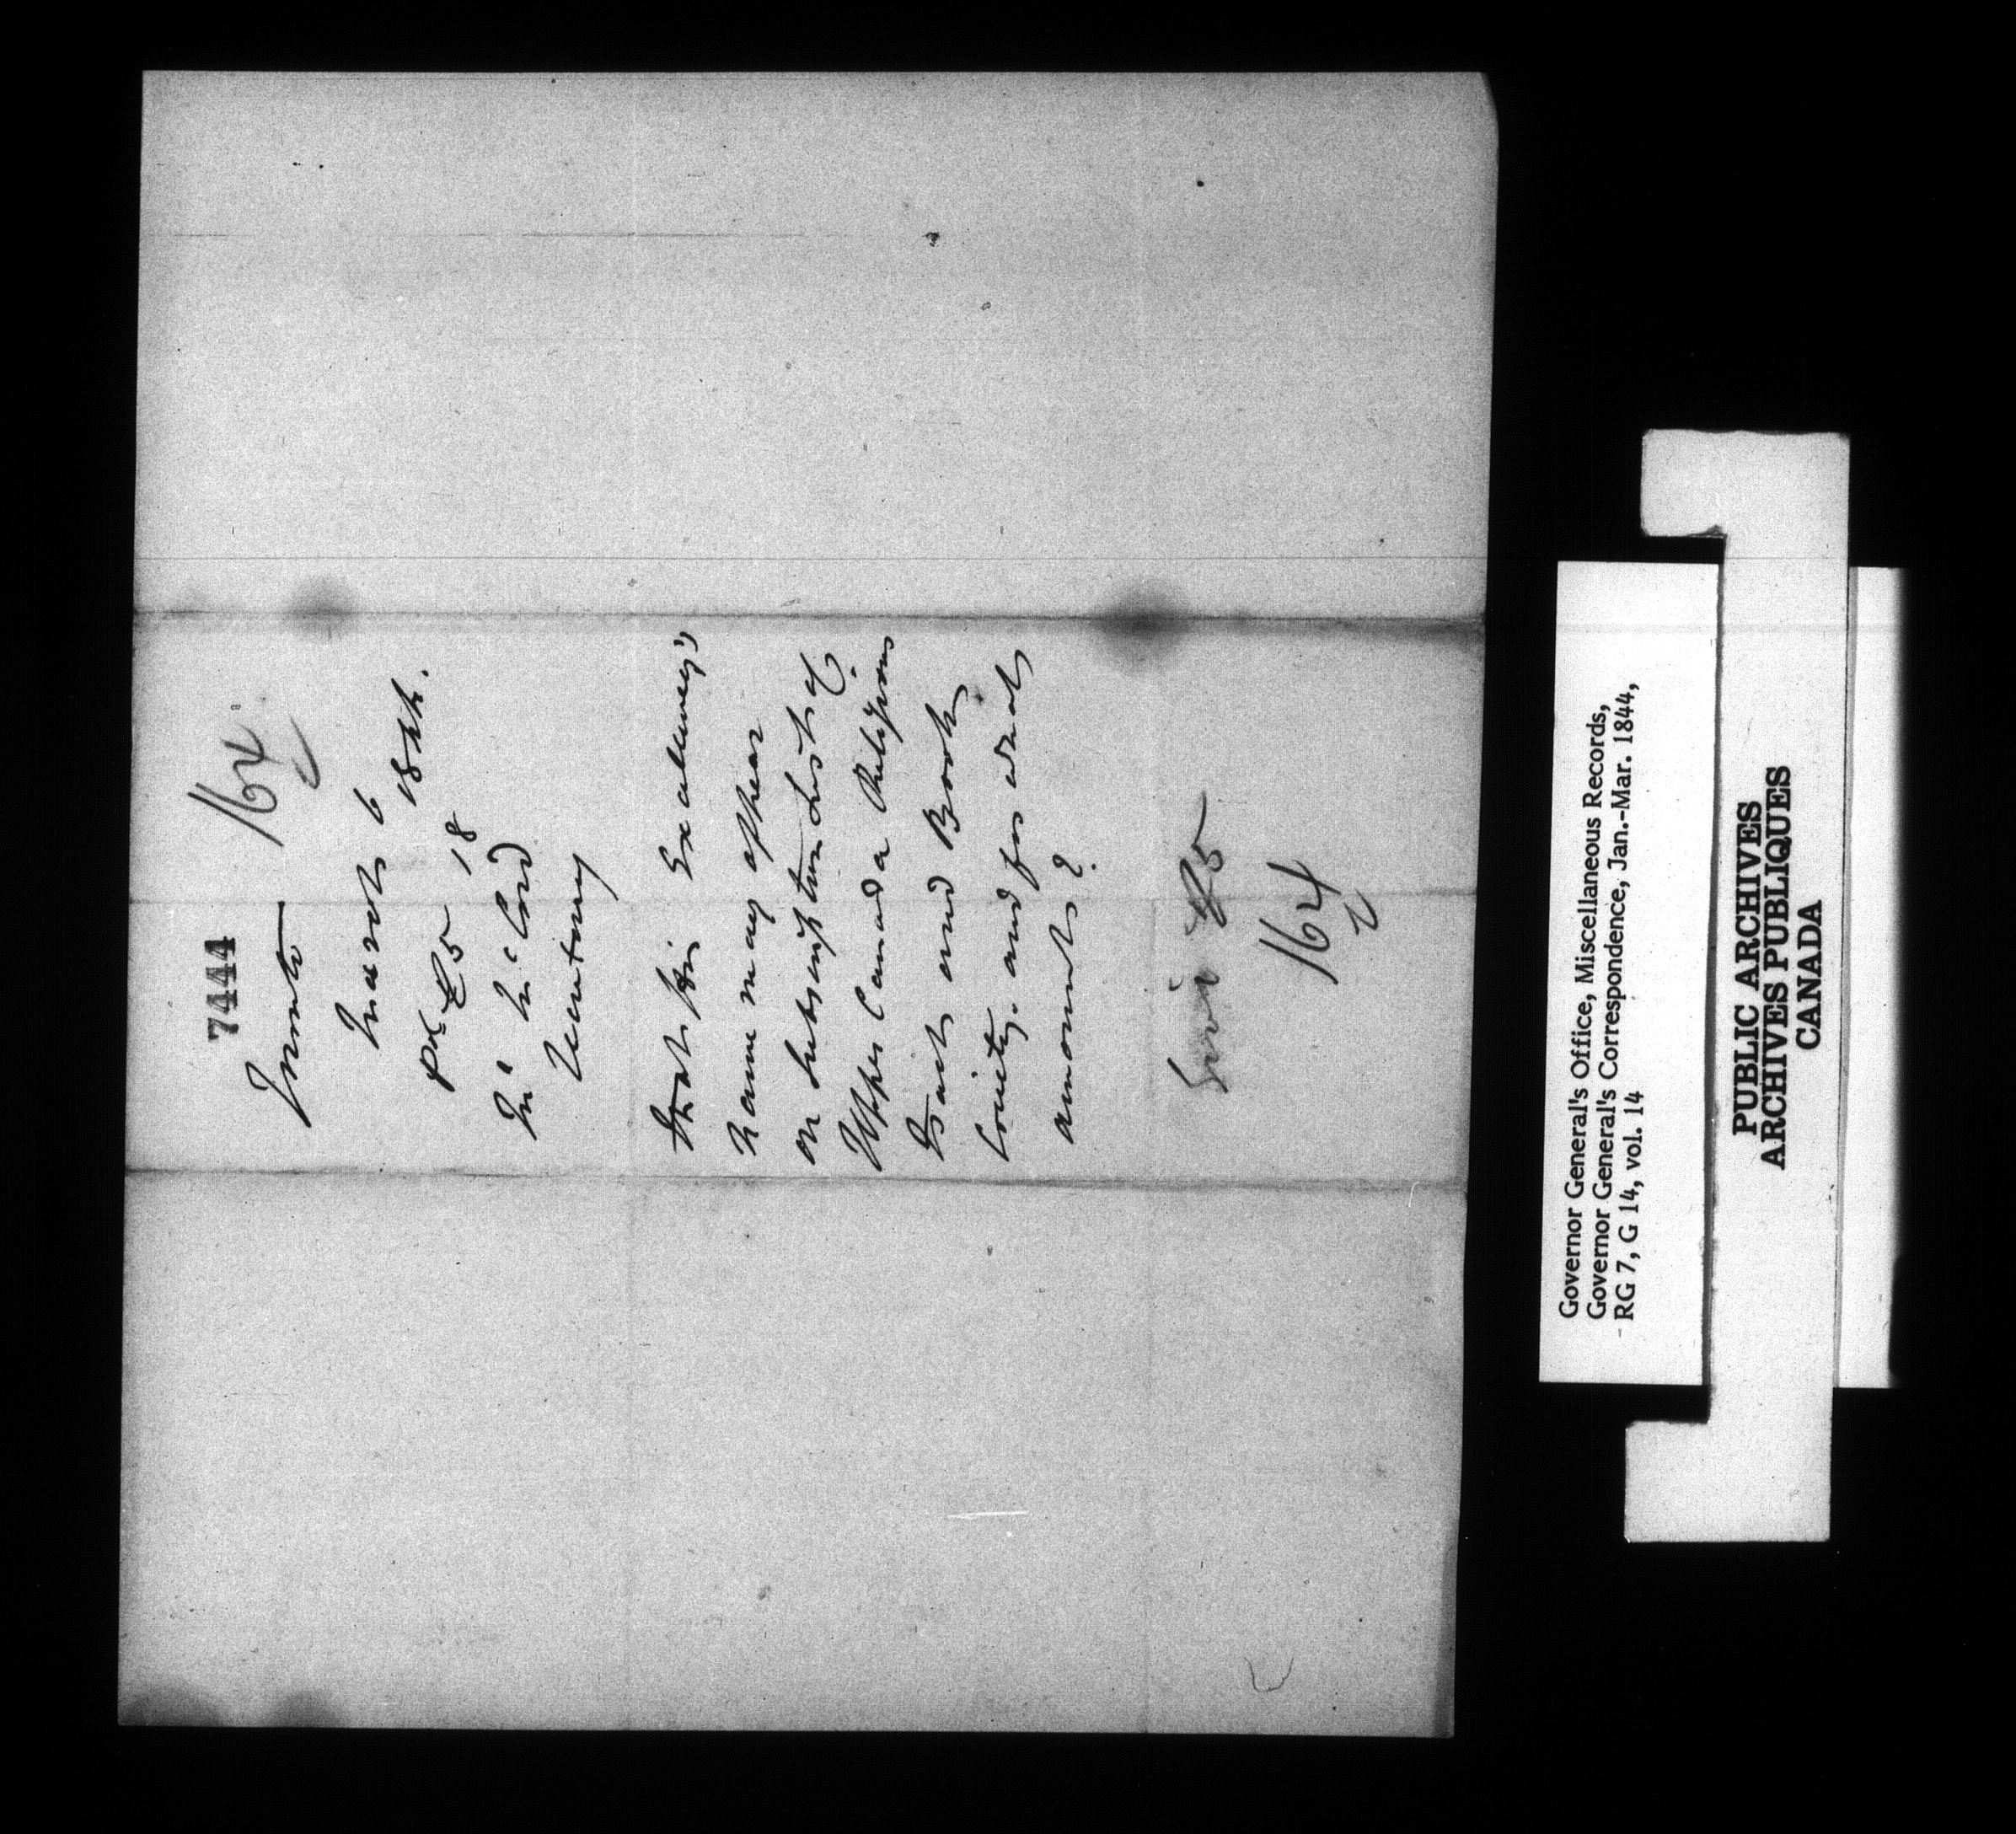 7444
164
Toronto
March 6
1844.
£5 18
Mr McCord
Secretary
That His Excellency's
name may appear
on Subscription List of
Upper Canada Religious
Tract and Book
Society. and for what
amount?
Give £5
164
Governor General's Office, Miscellaneous Records,
Governor General's Correspondence, Jan.-Mar. 1844,
RG 7, G 14, vol. 14
PUBLIC ARCHIVES
ARCHIVES PUBLIQUES
CANADA